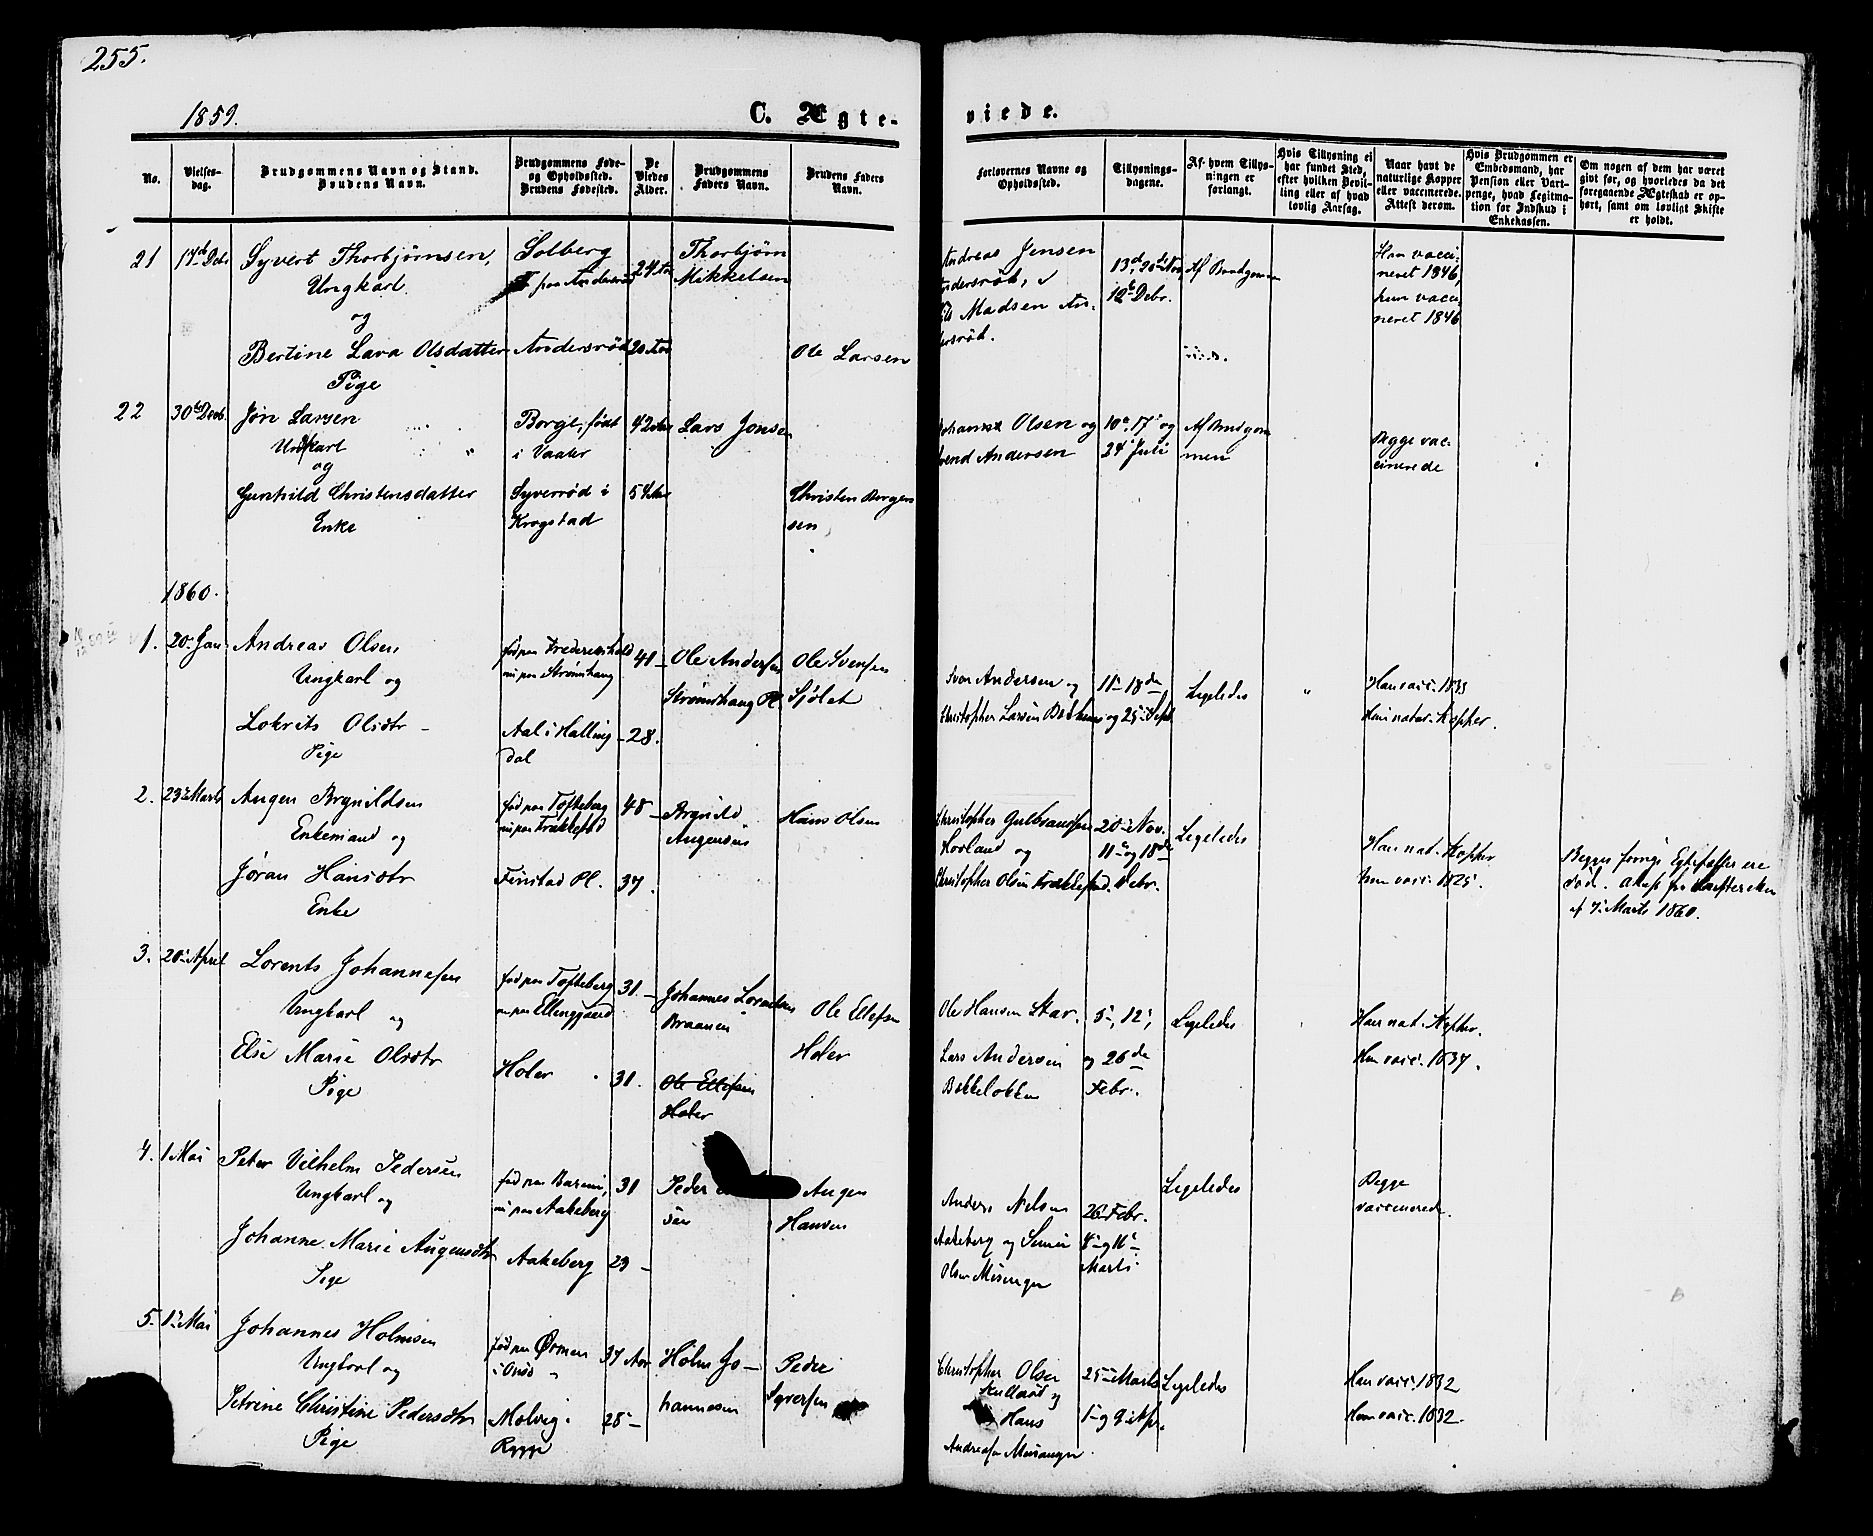 255.
1859.
C. Ægte-
viede.
No.
Vielses-
dag.
Brudgommens Navn og Stand.
Brudens Navn.
Brudgommens Føde-
og Opholdssted.
Brudens Fødested.
De
Viedes
Alder.
Brudgommens
Faders Navn.
Brudens Faders
Navn.
Forlovernes Navne og
Opholdssted.
Tillysnings-
dagene.
Af hvem Tillys-
ningen er
forlangt.
Hvis Tillysning ei
har fundet Sted,
efter hvilken Bevil-
ling eller af hvad
lovlig Aarsag.
Naar havt de
naturlige Kopper
eller vaccinerede.
Attest derom.
Hvis Brudgommen er
Embedsmand, har
Pension eller Vart-
penge, hvad Legitma-
tion for Indskud i
Enkekassen.
Om nogen af dem har været
gift før, og hvorledes da det
foregaaende Ægteskab er op-
hørt, samt om lovligt Skifte
er holdt.
21
17de Debr
Syvert Thorbjørnsen,
Ungkarl
og
Bertine Lava Olsdatter
Pige
Solberg
paa Andersrød
Andersrød
24 Aar
20 Aar
Thorbjørn
Mikkelsen
Ole Larsen
Andreas Jensen
Andersrød,
Madsen An-
dersrød.
13de, 20de Nov
12te Debr.
Af Brudgommen
Han vacci-
neret 1846,
hun vacci-
neret 1846
22
30te Decb.
Jon Larsen
Ungkarl
og
Gunhild Christensdatter
Enke
Borge, født
i Vaaler
Syverrød i
Krogstad
42 Aar
54 Aar
Lars Jonsen
Christen Borgers
sen
Johannes Olsen og
Svend Andersen
10de, 17de og
24de Juli
Af Brudgom
men
Begge vac-
cinerede
1860.
1.
20. Jan.
Andreas Olsen,
Ungkarl og
Lokrits Olsdtr
Pige
fød paa Frederikshald
nu paa Strømshaug
Aal i Halling
dal
41 -
28.
Ole Andersen
Strømshaug Pl.
Ole Svensen
Sjølet
Ivar Andersen og
Christopher Larsen
11- 18de
og 25. Sept.
Ligeledes
"
Han vacc. 1833
Hun natur. Kopper.
2.
23. Marts
Augen Brynildsen
Enkemand og
Jøran Hansdtr
Enke
fød paa Tofteberg
nu paa Frakkestad
Finstad Pl.
48 -
37.
Brynild
Augensen
Hans Olsen
Christopher Gulbrandsen
Hovland og
Christopher Olsen Frakkestad.
20. Nov.
11. og 18de
Debr.
Ligeledes
Han nat. Kopper
hun vacc. 1825.
Begges forrige Egtefæller ere
død. Attest fra Skifteretten
af 7. Marts 1860.
3.
20. April
Lorents Johannesen
Ungkarl og
Else Marie Olsdtr
Pige
fød paa Tofteberg
nu paa Ellingaard
Holer
31. -
31.
Johannes Lorentsen
Braanen
Ole Ellefsen
Holer
Ole Ellefsen
Holer
Ole Hansen Skar.
Lars Andersen
Bekkeløkken
5-, 12,
og 26de
Febr.
Ligeledes
Han nat. Kopper.
Hun vacc. 1837.
4.
1 Mai
Peter Vilhelm Pedersen
Ungkarl og
Johanne Marie Augensdtr
Pige
nu paa Aakeberg
Aakeberg
31
29 -
Peder
sen
Augen
Hansen
Anders Nilsen
Aakeberg og
Olsen Misingen
26. Febr.
4. og 11.
Marts
Ligeledes
Begge
vaccinerede.
5.
1. Mai
Johannes Holmsen
Ungkarl og
Petrine Christine Pedersdtr
Pige
fød paa Ørmen
i Onsø
Molvig i
Rygge
37 Aar
28 -
Holm Jo-
hannesen
Peder
Syversen
Christopher Olsen
og
Hans
Andreasen Misingen.
25. Marts
1. og 9. Apr.
Ligeledes
Han vacc. 1832
Hun vacc. 1832.